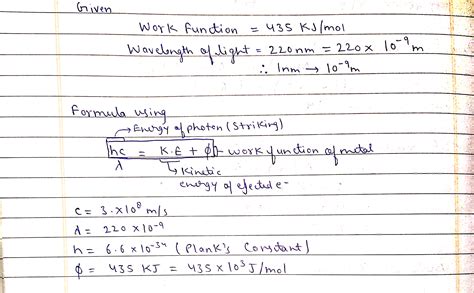 Given
Work Function = 435 KJ/mol
Wavelength of light = 220nm = 220 × 10⁻⁹ m
∴ 1nm → 10⁻⁹m
Formula using
→ Energy of photon (Striking)
hc/λ = K.E + ϕ → work function of metal
↳ Kinetic
energy of ejected e⁻
c = 3.×10⁸ m/s
λ = 220 ×10⁻⁹
h = 6.6 ×10⁻³⁴ (Plank's Constant)
ϕ = 435 KJ = 435 ×10³ J/mol